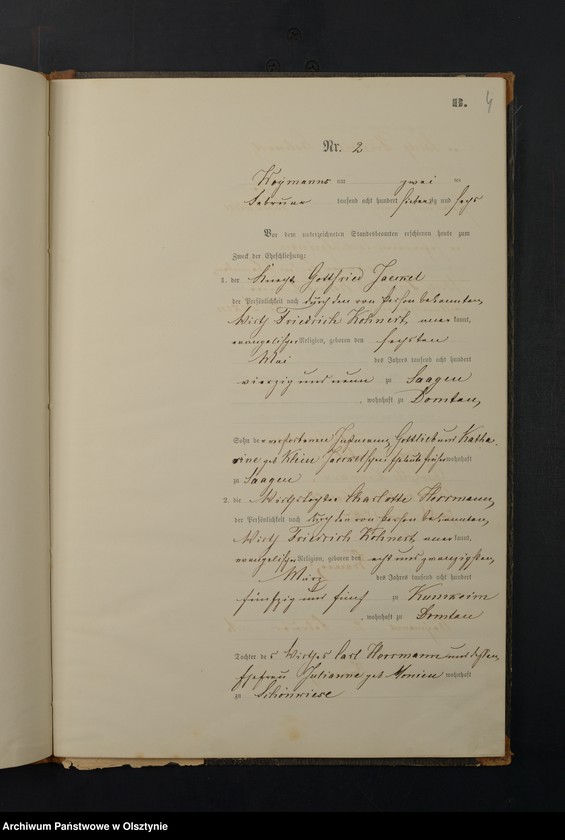 B. 4
Nr. 2
am zwei ten
Februar tausend acht hundert siebenzig und sechs
Vor dem unterzeichneten Standesbeamten erschienen heute zum
Zweck der Eheschließung:
1. der Knecht Gottfried Jaeckel
der Persönlichkeit nach durch den von Person bekannten,
Wirth Friedrich Kohnert, aner kannt,
evangelischer Religion, geboren den sechsten
Mai des Jahres tausend acht hundert
vierzig und neun zu Saagen
, wohnhaft zu Domtau,
Sohn der verstorbenen Gottlieb und Katha-
rine geb Klein Jaeckelschen Eheleute früher wohnhaft
zu Saagen
2. die Wirthstochter Charlotte Horrmann,
der Persönlichkeit nach durch den von Person bekannten,
Wirth Friedrich Kohnert, aner kannt,
evangelischer Religion, geboren den acht und zwanzigsten,
März des Jahres tausend acht hundert
fünfzig und fünf zu Kumkeim
, wohnhaft zu Domtau
Tochter des Wirthes Carl Horrmann und dessen
Ehefrau Julianne geb Monien wohnhaft
zu Schönwiese
Archiwum Państwowe w Olsztynie